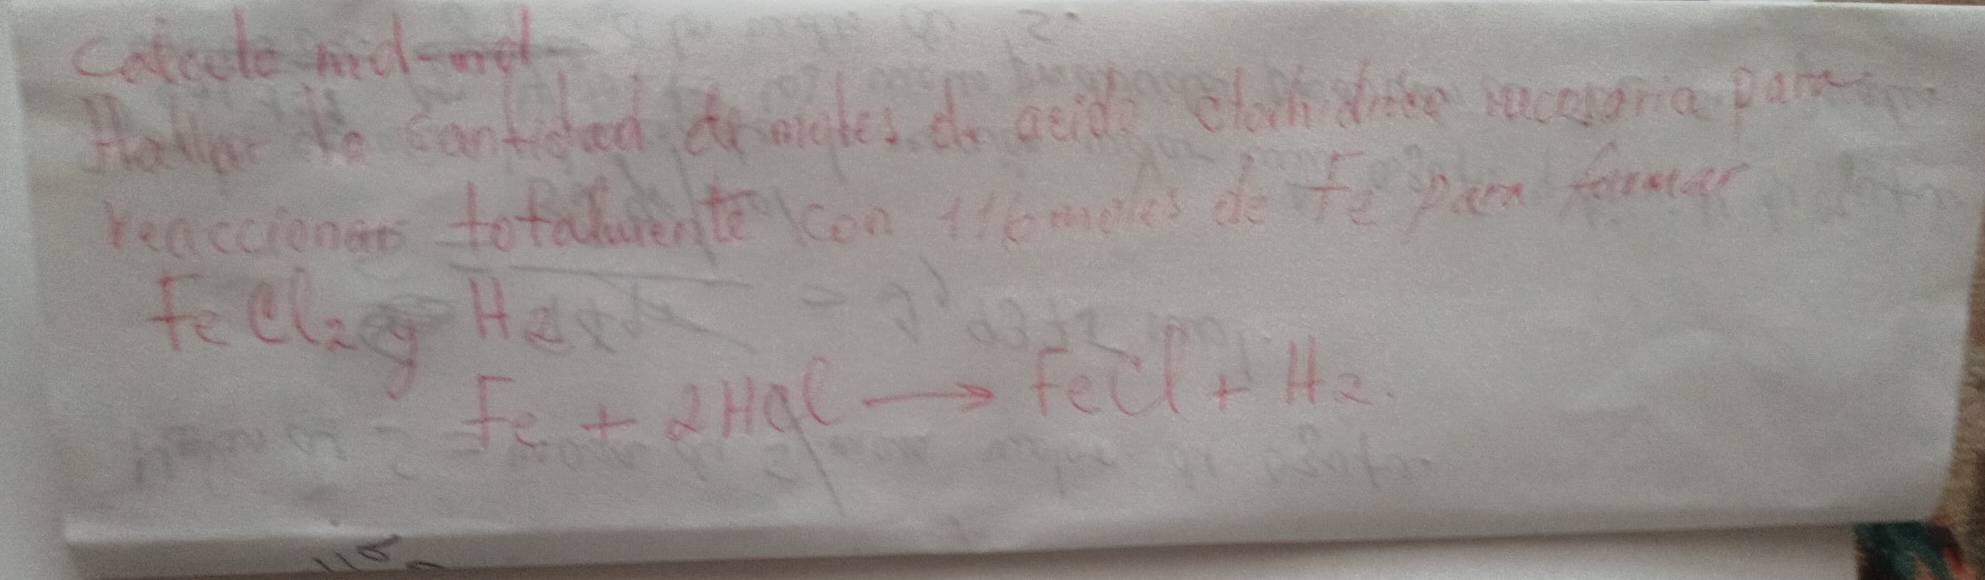 Calculo mol-mol
Hallar la cantidad de moles de acido clorhidrico necesaria para
reaccionar totalmente con 116 moles de Fe para formar
FeCl2 y H2
Fe + 2HCl → FeCl + H2.